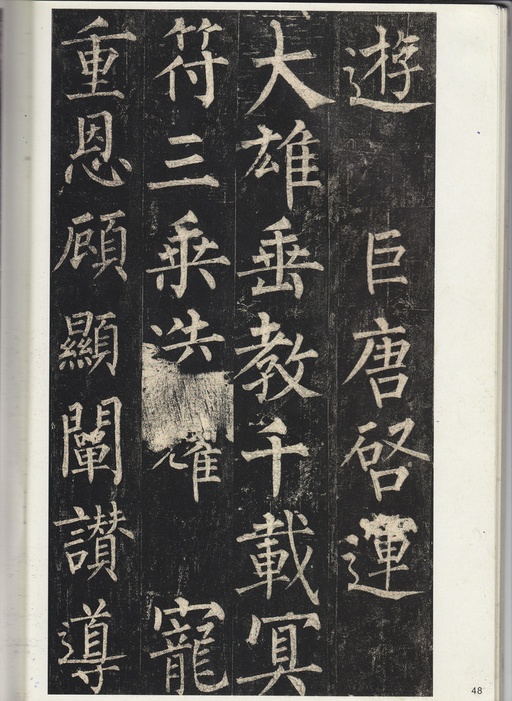 遊 巨唐啓運
大雄垂教千載冥
符三乘迭耀 寵
重恩顧顯闡讚導
48